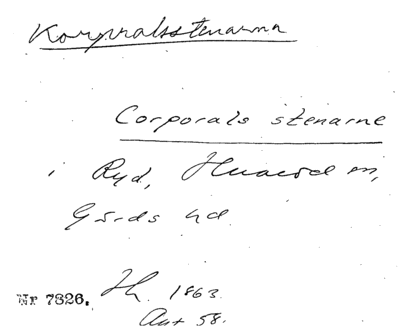 Korpralsstenarna
Corporals stenarne
i Ryd, Huaröd sn,
Gärds hd.
Nr 7826. Th. 1863.
Ant 58.